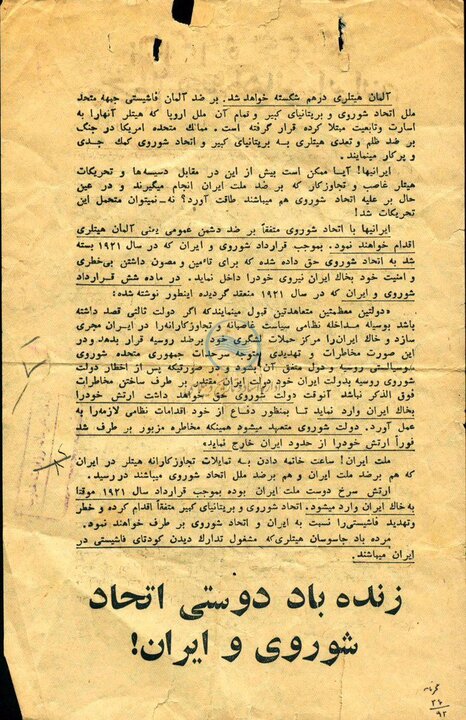 آلمان هیتلری درهم شکسته خواهد شد. بر ضد آلمان فاشیستی جبهه متحد
ملل اتحاد شوروی و بریتانیای کبیر و تمام آن ملل اروپا که هیتلر آنهارا به
اسارت وتابعیت مبتلا کرده قرار گرفته است. ممالك متحده امریکا در جنگ
بر ضد ظلم و تعدی هیتلری بـه بریتانیای کبیر و اتحاد شوروی کمك جدی
و پرکار مینمایند.
ایرانیها! آیـا ممکن است بیش از این در مقابل دسیسه‌ها و تحریکات
هیتلر غاصب و تجاوزکار که بر ضد ملت ایران انجام میگیرند و در عین
حال بر علیه اتحاد شوروی هم میباشند طاقت آورد؟ نه_نمیتوان متحمل این
تحریکات شد!
ایرانیها با اتحاد شوروی متفقاً بر ضد دشمن عمومی یعنی آلمان هیتلری
اقدام خواهند نمود. بموجب قرارداد شوروی و ایران که در سال ۱۹۲۱ بسته
شد به اتحاد شوروی حق داده شده که برای تامین و مصون داشتن بی‌خطری
و امنیت خود بخاك ایران نیروی خودرا داخل نماید. در ماده شش قرارداد
شوروی و ایران که در سال ۱۹۲۱ منعقد گردیده اینطور نوشته شده:
«دولتین معظمتین متعاهدتین قبول مینمایندکه اگر دولت ثالثی قصد داشته
باشد بوسیله مداخله نظامی سیاست غاصبانه و تجاوزکارانه‌را در ایران مجری
سازد و خاك ایران‌را مرکز حملات لشگری خود برضد روسیه قرار بدهد و در
این صورت مخاطرات و تهدیدی متوجه سرحدات جمهوری متحده شوروی
سوسیالستی روسیه و دول متفق آن بشود و در صورتیکه پس از اخطار دولت
شوروی روسیه بدولت ایران خود دولت ایران مقتدر بر طرف ساختن مخاطرات
فوق الذکر نباشد آنوقت دولت شوروی حق خواهد داشت ارتش خودرا
بخاك ایران وارد نماید تا بمنظور دفاع از خود اقدامات نظامی لازمه‌را به
عمل آورد. دولت شوروی متعهد میشود همینکه مخاطره مزبور بر طرف شد
فوراً ارتش خودرا از حدود ایران خارج نماید»
ملت ایران! ساعت خاتمه دادن به تمایلات تجاوزکارانه هیتلر در ایران
که هم برضد ملت ایران و هم برضد ملل اتحاد شوروی میباشند دررسید.
ارتش سرخ دوست ملت ایران بوده بموجب قرارداد سال ۱۹۲۱ موقتا
به خاك ایران وارد میشود. اتحاد شوروی و بریتانیای کبیر متفقاً اقدام کرده و خطر
وتهدید فاشیستی‌را نسبت به ایران و اتحاد شوروی بر طرف خواهند نمود.
مرده باد جاسوسان هیتلری‌که مشغول تدارك دیدن کودتای فاشیستی در
ایران میباشند.
زنده باد دوستی اتحاد
شوروی و ایران!
۲۶
۹۲